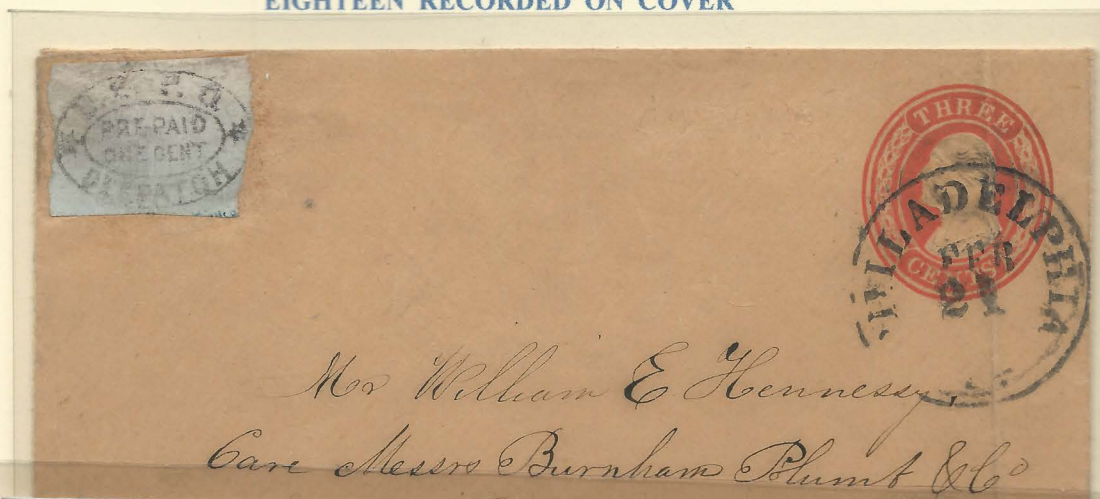 EIGHTEEN RECORDED ON COVER
U.S.P.O.
PRE-PAID
ONE CENT
DESPATCH
THREE
CENTS
PHILADELPHIA
FEB
21
Mr William E Hennessy,
Care Messrs Burnham Plumb & Co